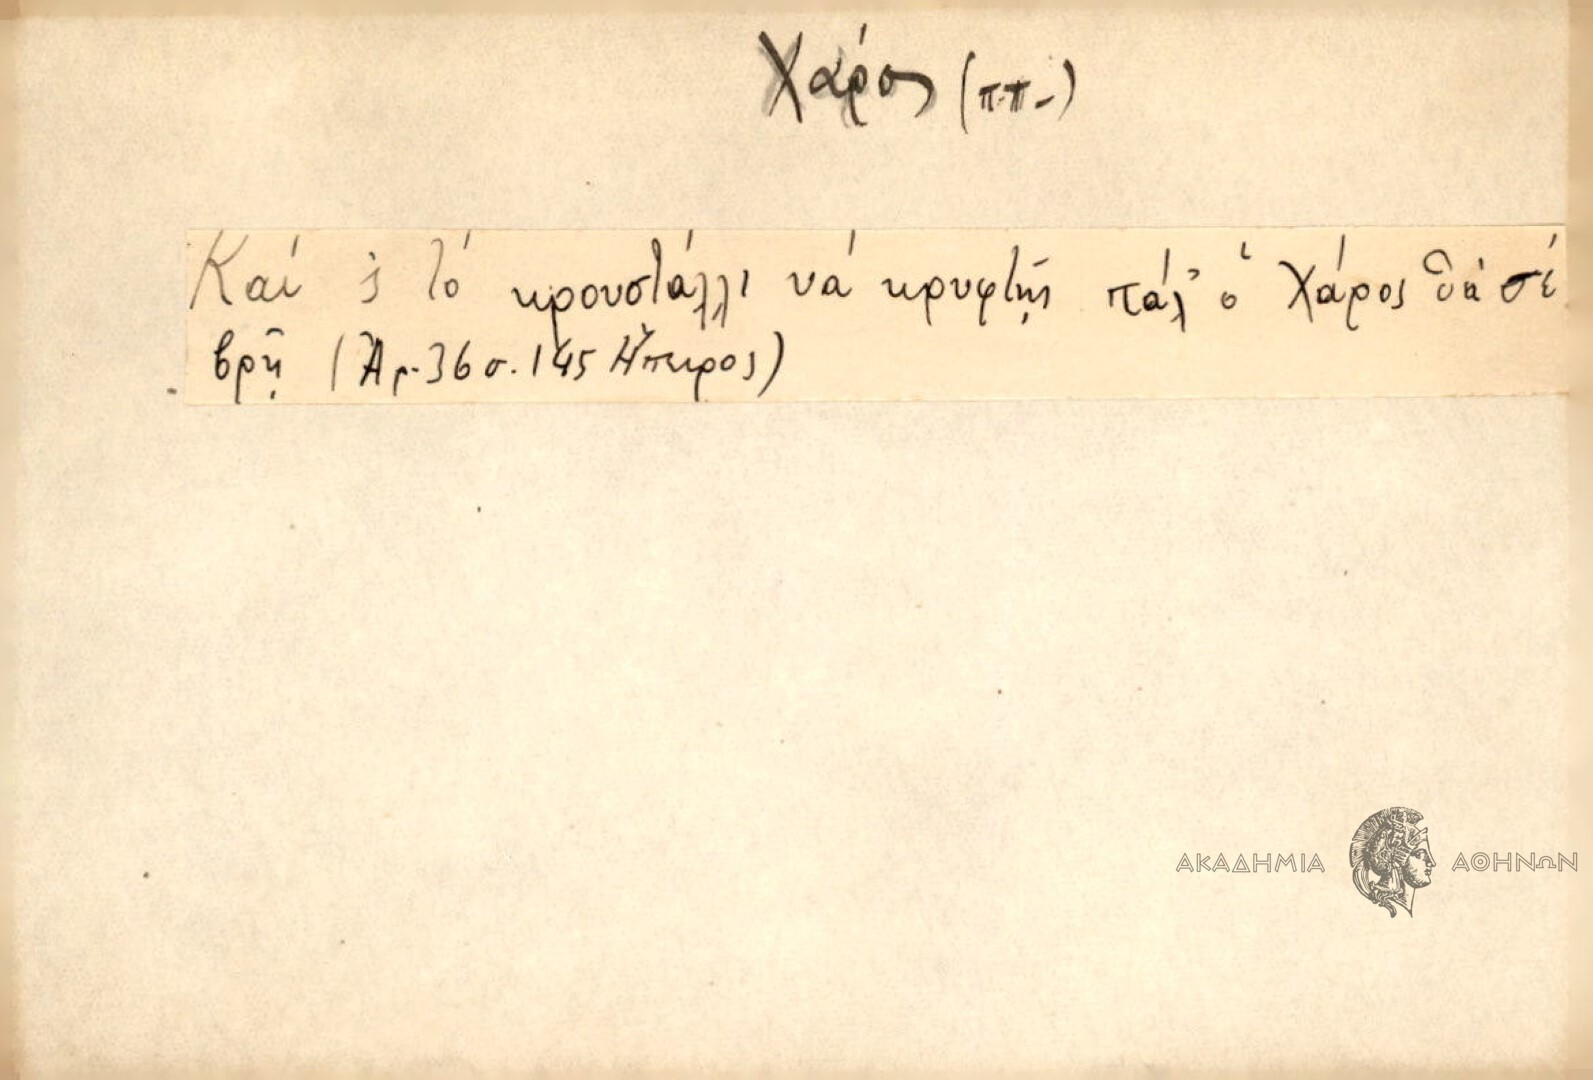 Χάρος (ππ-)
Καί 'ς τό κρουστάλλι νά κρυφτῇς πάλ' ὁ Χάρος θά σέ
βρῇ (Ἀρ. 36 σ. 145 Ἤπειρος)
ΑΚΑΔΗΜΙΑ ΑΘΗΝΩΝ